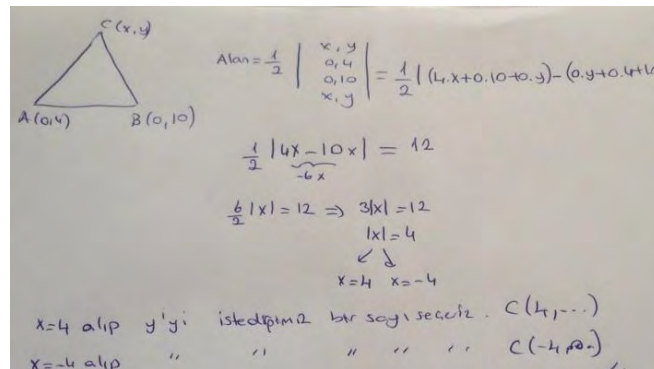 C(x,y)
A(0,4)
B(0,10)
Alan = 1/2 | x, y
0, 4
0, 10
x, y | = 1/2 | (4.x+0.10+0.y)-(0.y+0.4+10
1/2 |4x-10x| = 12
-6x
6/2 |x| = 12 => 3|x| = 12
|x| = 4
x=4 x=-4
x=4 alıp y'yi istediğimiz bir sayı seçeriz. C(4,...)
x=-4 alıp " " " " " C(-4,